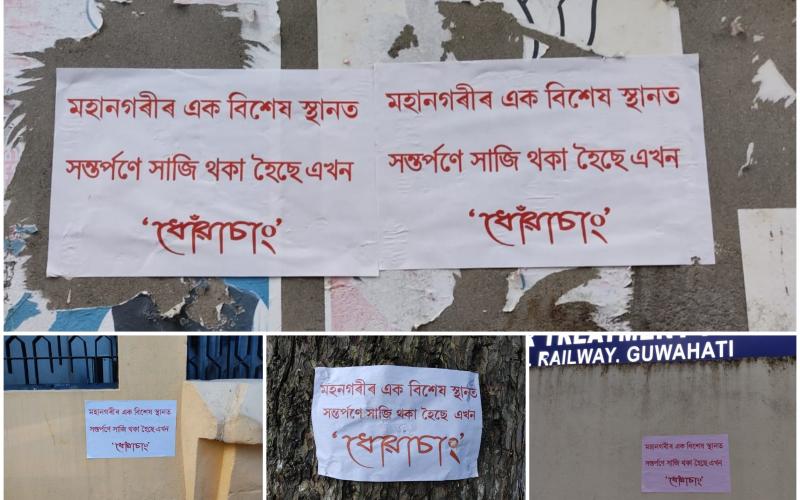 মহানগৰীৰ এক বিশেষ স্থানত
সন্তৰ্পণে সাজি থকা হৈছে এখন
‘ধোঁৱাচাং’
মহানগৰীৰ এক বিশেষ স্থানত
সন্তৰ্পণে সাজি থকা হৈছে এখন
‘ধোঁৱাচাং’
মহানগৰীৰ এক বিশেষ স্থানত
সন্তৰ্পণে সাজি থকা হৈছে এখন
‘ধোঁৱাচাং’
মহানগৰীৰ এক বিশেষ স্থানত
সন্তৰ্পণে সাজি থকা হৈছে এখন
‘ধোঁৱাচাং’
TREATMENT
RAILWAY. GUWAHATI
মহানগৰীৰ এক বিশেষ স্থানত
সন্তৰ্পণে সাজি থকা হৈছে এখন
‘ধোঁৱাচাং’